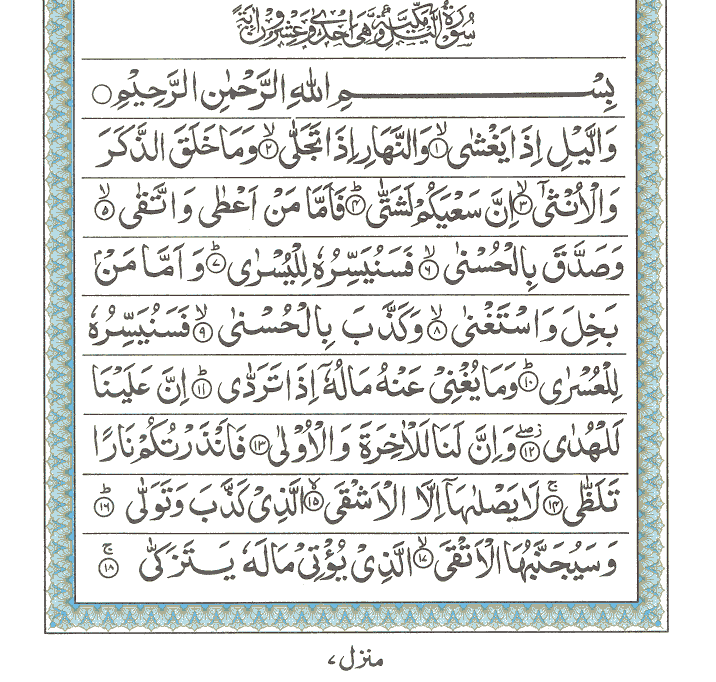 سُوْرَةُ الَّيْلِ مَكِّيَّةٌ وَّهِىَ اِحْدٰى وَعِشْرُوْنَ اٰيَةً
بِسْمِ اللهِ الرَّحْمٰنِ الرَّحِيْمِ ○
وَالَّيْلِ اِذَا يَغْشٰى ۙ﴿۱﴾ وَالنَّهَارِ اِذَا تَجَلّٰى ۙ﴿۲﴾ وَمَا خَلَقَ الذَّكَرَ
وَالْاُنْثٰٓى ۙ﴿۳﴾ اِنَّ سَعْيَكُمْ لَشَتّٰى ؕ﴿۴﴾ فَاَمَّا مَنْ اَعْطٰى وَاتَّقٰى ۙ﴿۵﴾
وَصَدَّقَ بِالْحُسْنٰى ۙ﴿۶﴾ فَسَنُيَسِّرُهٗ لِلْيُسْرٰى ؕ﴿۷﴾ وَاَمَّا مَنْۢ
بَخِلَ وَاسْتَغْنٰى ۙ﴿۸﴾ وَكَذَّبَ بِالْحُسْنٰى ۙ﴿۹﴾ فَسَنُيَسِّرُهٗ
لِلْعُسْرٰى ؕ﴿۱۰﴾ وَمَا يُغْنِىْ عَنْهُ مَالُهٗٓ اِذَا تَرَدّٰى ؕ﴿۱۱﴾ اِنَّ عَلَيْنَا
لَلْهُدٰى ۖ﴿۱۲﴾ وَاِنَّ لَنَا لَلْاٰخِرَةَ وَالْاُوْلٰى ﴿۱۳﴾ فَاَنْذَرْتُكُمْ نَارًا
تَلَظّٰى ۚ﴿۱۴﴾ لَا يَصْلٰىهَاۤ اِلَّا الْاَشْقَى ۙ﴿۱۵﴾ الَّذِىْ كَذَّبَ وَتَوَلّٰى ؕ﴿۱۶﴾
وَسَيُجَنَّبُهَا الْاَتْقَى ۙ﴿۱۷﴾ الَّذِىْ يُؤْتِىْ مَالَهٗ يَتَزَكّٰى ۚ﴿۱۸﴾
منزل ٧